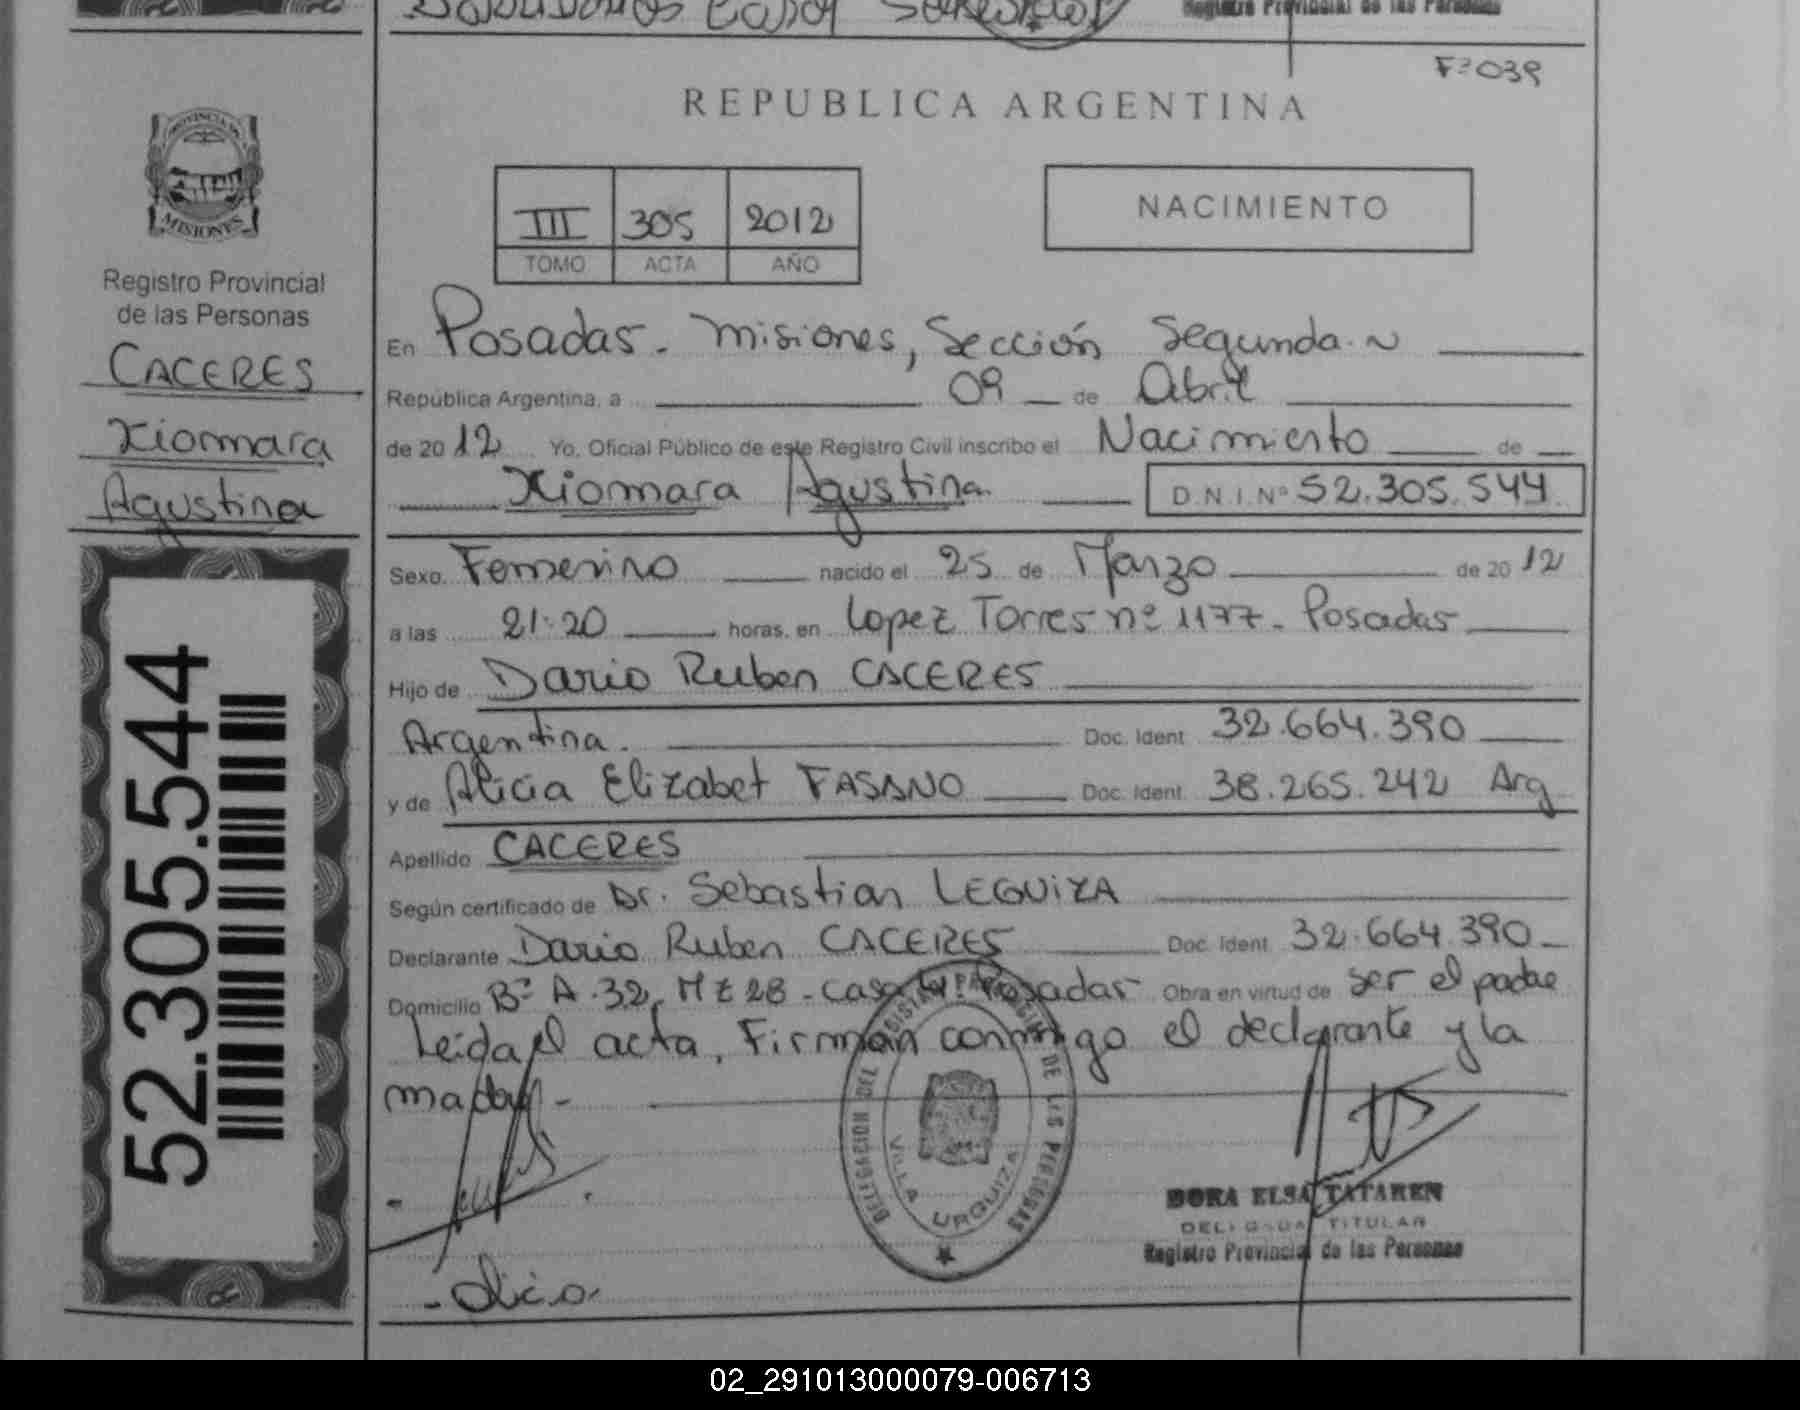 Registro Provincial de las Personas
Fº 039
REPUBLICA ARGENTINA
PROVINCIA DE
MISIONES
Registro Provincial
de las Personas
CACERES
Xiomara
Agustina
52.305.544
III 305 2012
TOMO ACTA AÑO
NACIMIENTO
En Posadas - Misiones, Sección Segunda.~
República Argentina, a 09 de Abril
de 2012 Yo, Oficial Público de este Registro Civil inscribo el Nacimiento de
Xiomara Agustina D.N.I. Nº 52.305.544
Sexo Femenino nacido el 25 de Marzo de 2012
a las 21:20 horas, en Lopez Torres nº 1177 - Posadas
Hijo de Dario Ruben CACERES
Argentina. Doc. Ident 32.664.390
y de Alicia Elizabet FASANO Doc. Ident. 38.265.242 Arg
Apellido CACERES
Según certificado de Dr. Sebastian LEGUIZA
Declarante Dario Ruben CACERES Doc. Ident 32.664.390
Domicilio Bº A-32, Mz 28 - Casa Posadas Obra en virtud de ser el padre
Leida el acta, Firman conmigo el declarante y la
madre -
DELEGACION DEL REGISTRO PROVINCIAL DE LAS PERSONAS
VILLA URQUIZA
DORA ELSA TATAREN
DELEGADA TITULAR
Registro Provincial de las Personas
- Alicia
02_291013000079-006713